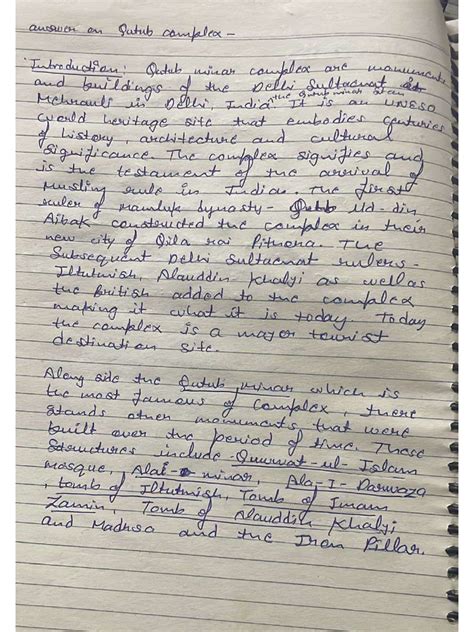 answer on Qutub complex -
Introduction: Qutub minar complex are monuments
and buildings of the Delhi Sultacnat at
Mehrauli in Delhi, India. the Qutub minar stan
It is an UNESO
world heritage site that embodies centuries
of history, architecture and cultural
significance. The complex signifies and
is the testament of the arrival of
Musling rule in India. The first
ruler of Mamluk Dynasty - Qutb Ud-din
Aibak constructed the complex in their
new city of Qila rai Pithora. The
Subsequent Delhi Sultacnat rulers -
Iltutmish, Alauddin Khalji as well as
the British added to the complex
making it what it is today. Today
the complex is a mayor tourist
destination site.
Along side the Qutub minar which is
the most famous of complex, there
stands other monuments that were
built over the period of time. These
Structures include - Quwwat-ul-Islam
mosque, Alai- minar, Ala-I-Darwaza
, tomb of Iltutmish, Tomb of Imam
Zamin, Tomb of Alauddin Khalji
and Madrsa and the Iron Pillar.